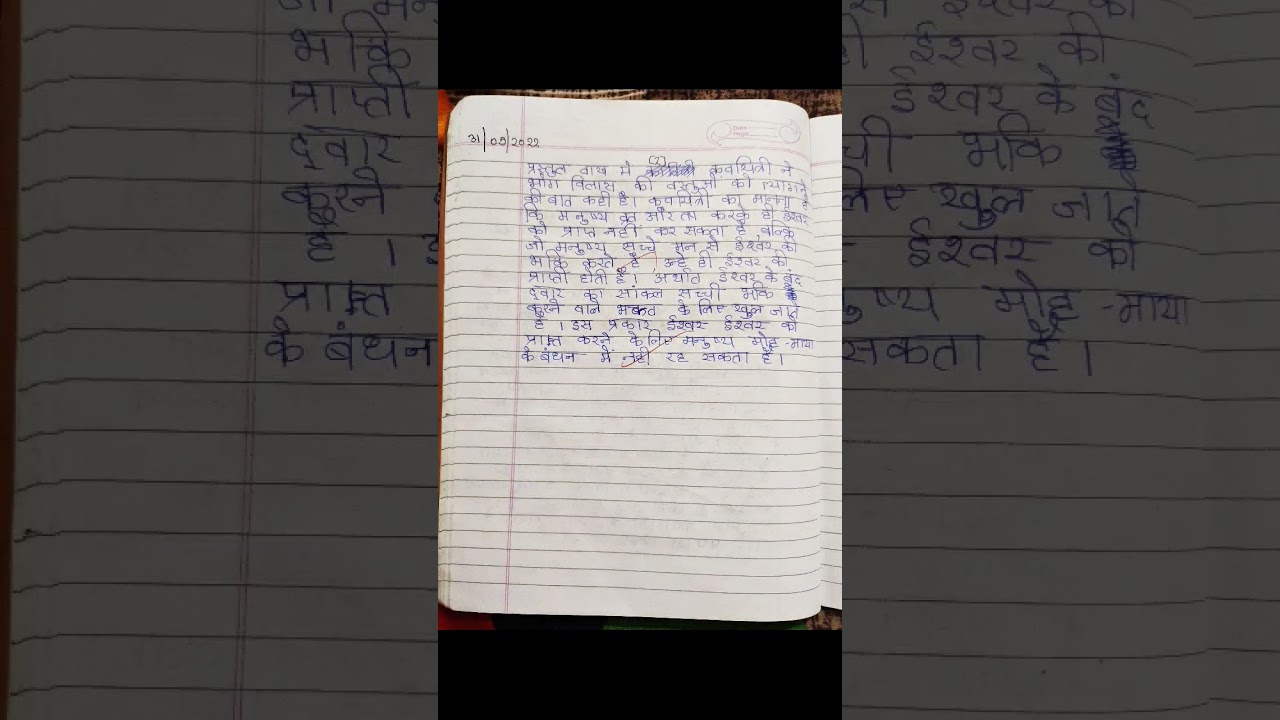 31/05/2022
(3)
प्रस्तुत वाख में कवयित्री ने
भोग विलास की वस्तुओं को त्यागने
की बात कही है। कवयित्री का मानना है
कि मनुष्य व्रत और तप करके ही ईश्वर
को प्राप्त नहीं कर सकता है, बल्कि
जो मनुष्य सच्चे मन से ईश्वर की
भक्ति करते हैं उन्हें ही ईश्वर की
प्राप्ती होती है। अर्थात ईश्वर के बंद
दवार का सांकल सच्ची भक्ति
करने वाले भक्त के लिए खुल जाते
है। इस प्रकार ईश्वर ईश्वर को
प्राप्त करने के लिए मनुष्य मोह-माया
के बंधन में नहीं रह सकता है।